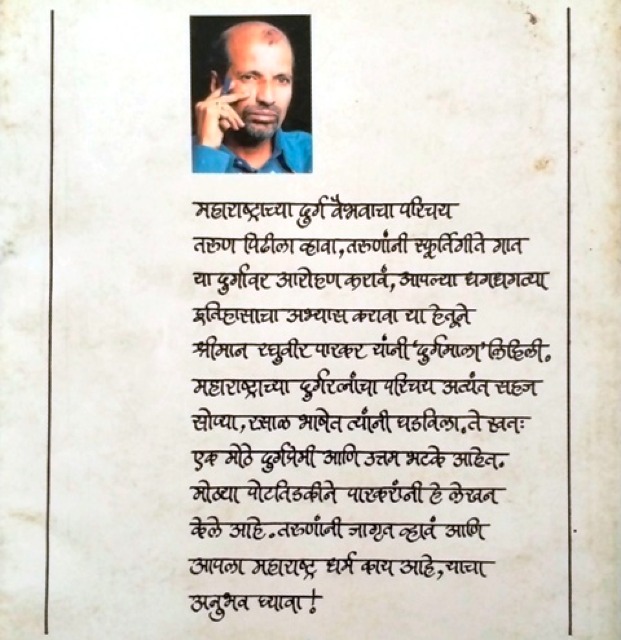 महाराष्ट्राच्या दुर्ग वैभवाचा परिचय
तरुण पिढीला व्हावा, तरुणांनी स्फूर्तिगीते गात
या दुर्गांवर आरोहण करावं, आपल्या धगधगत्या
इतिहासाचा अभ्यास करावा या हेतूने
श्रीमान रघुवीर पारकर यांनी 'दुर्गमाला' लिहिली.
महाराष्ट्राच्या दुर्गरत्नांचा परिचय अत्यंत सहज
सोप्या, रसाळ भाषेत त्यांनी घडविला. ते स्वतः
एक मोठे दुर्गप्रेमी आणि उत्तम भटके आहेत.
मोठ्या पोटतिडकीने पारकरांनी हे लेखन
केले आहे. तरुणांनी जागृत व्हावं आणि
आपला महाराष्ट्र धर्म काय आहे, याचा
अनुभव घ्यावा!